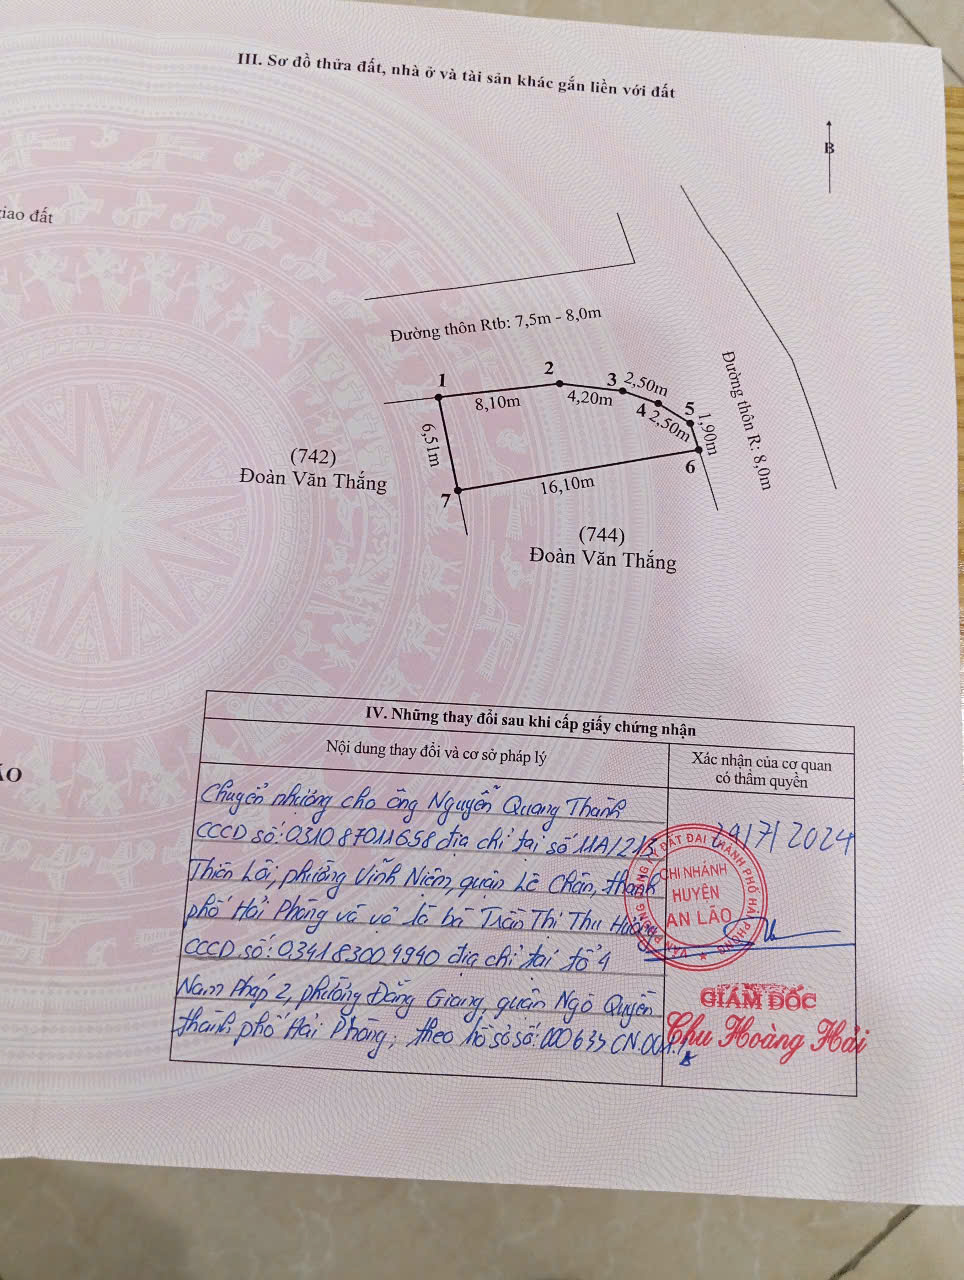 III. Sơ đồ thửa đất, nhà ở và tài sản khác gắn liền với đất
B
giao đất
Đường thôn Rtb: 7,5m - 8,0m
Đường thôn R: 8,0m
1
2
3
4
5
6
7
8,10m
4,20m
2,50m
2,50m
1,90m
16,10m
6,51m
(742)
Đoàn Văn Thắng
(744)
Đoàn Văn Thắng
ÃO
IV. Những thay đổi sau khi cấp giấy chứng nhận
Nội dung thay đổi và cơ sở pháp lý
Xác nhận của cơ quan
có thẩm quyền
Chuyển nhượng cho ông Nguyễn Quang Thành
CCCD số: 031087011658 địa chỉ tại số 11A/213
Thiên Lôi, phường Vĩnh Niệm, quận Lê Chân, thành
phố Hải Phòng và vợ là bà Trần Thị Thu Hường
CCCD số: 034183004940 địa chỉ tại tổ 4
Nam Pháp 2, phường Đằng Giang, quận Ngô Quyền
thành phố Hải Phòng; theo hồ sơ số: 000633.CN.001./.
29/7/2024
VĂN PHÒNG ĐĂNG KÝ ĐẤT ĐAI THÀNH PHỐ HẢI PHÒNG
CHI NHÁNH
HUYỆN
AN LÃO
GIÁM ĐỐC
Chu Hoàng Hải